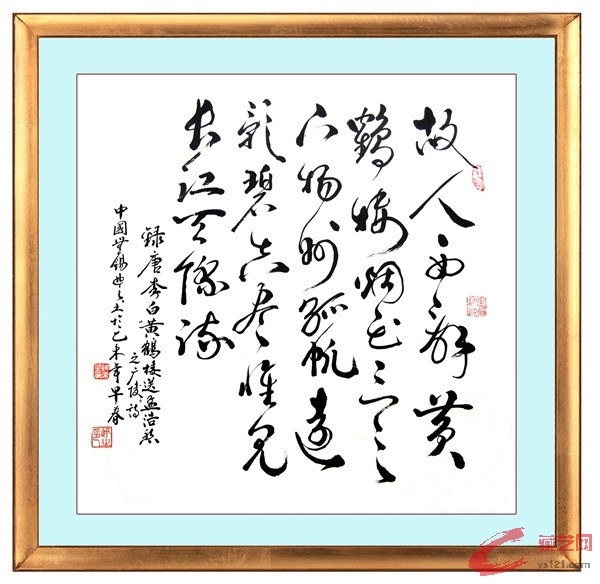 故人西辞黄
鹤楼烟花三月
下扬州孤帆远
影碧空尽惟见
长江天际流
録唐李白黄鹤楼送孟浩然
之广陵诗
中國無锡 于乙未年早春
藏艺网
ys121.com